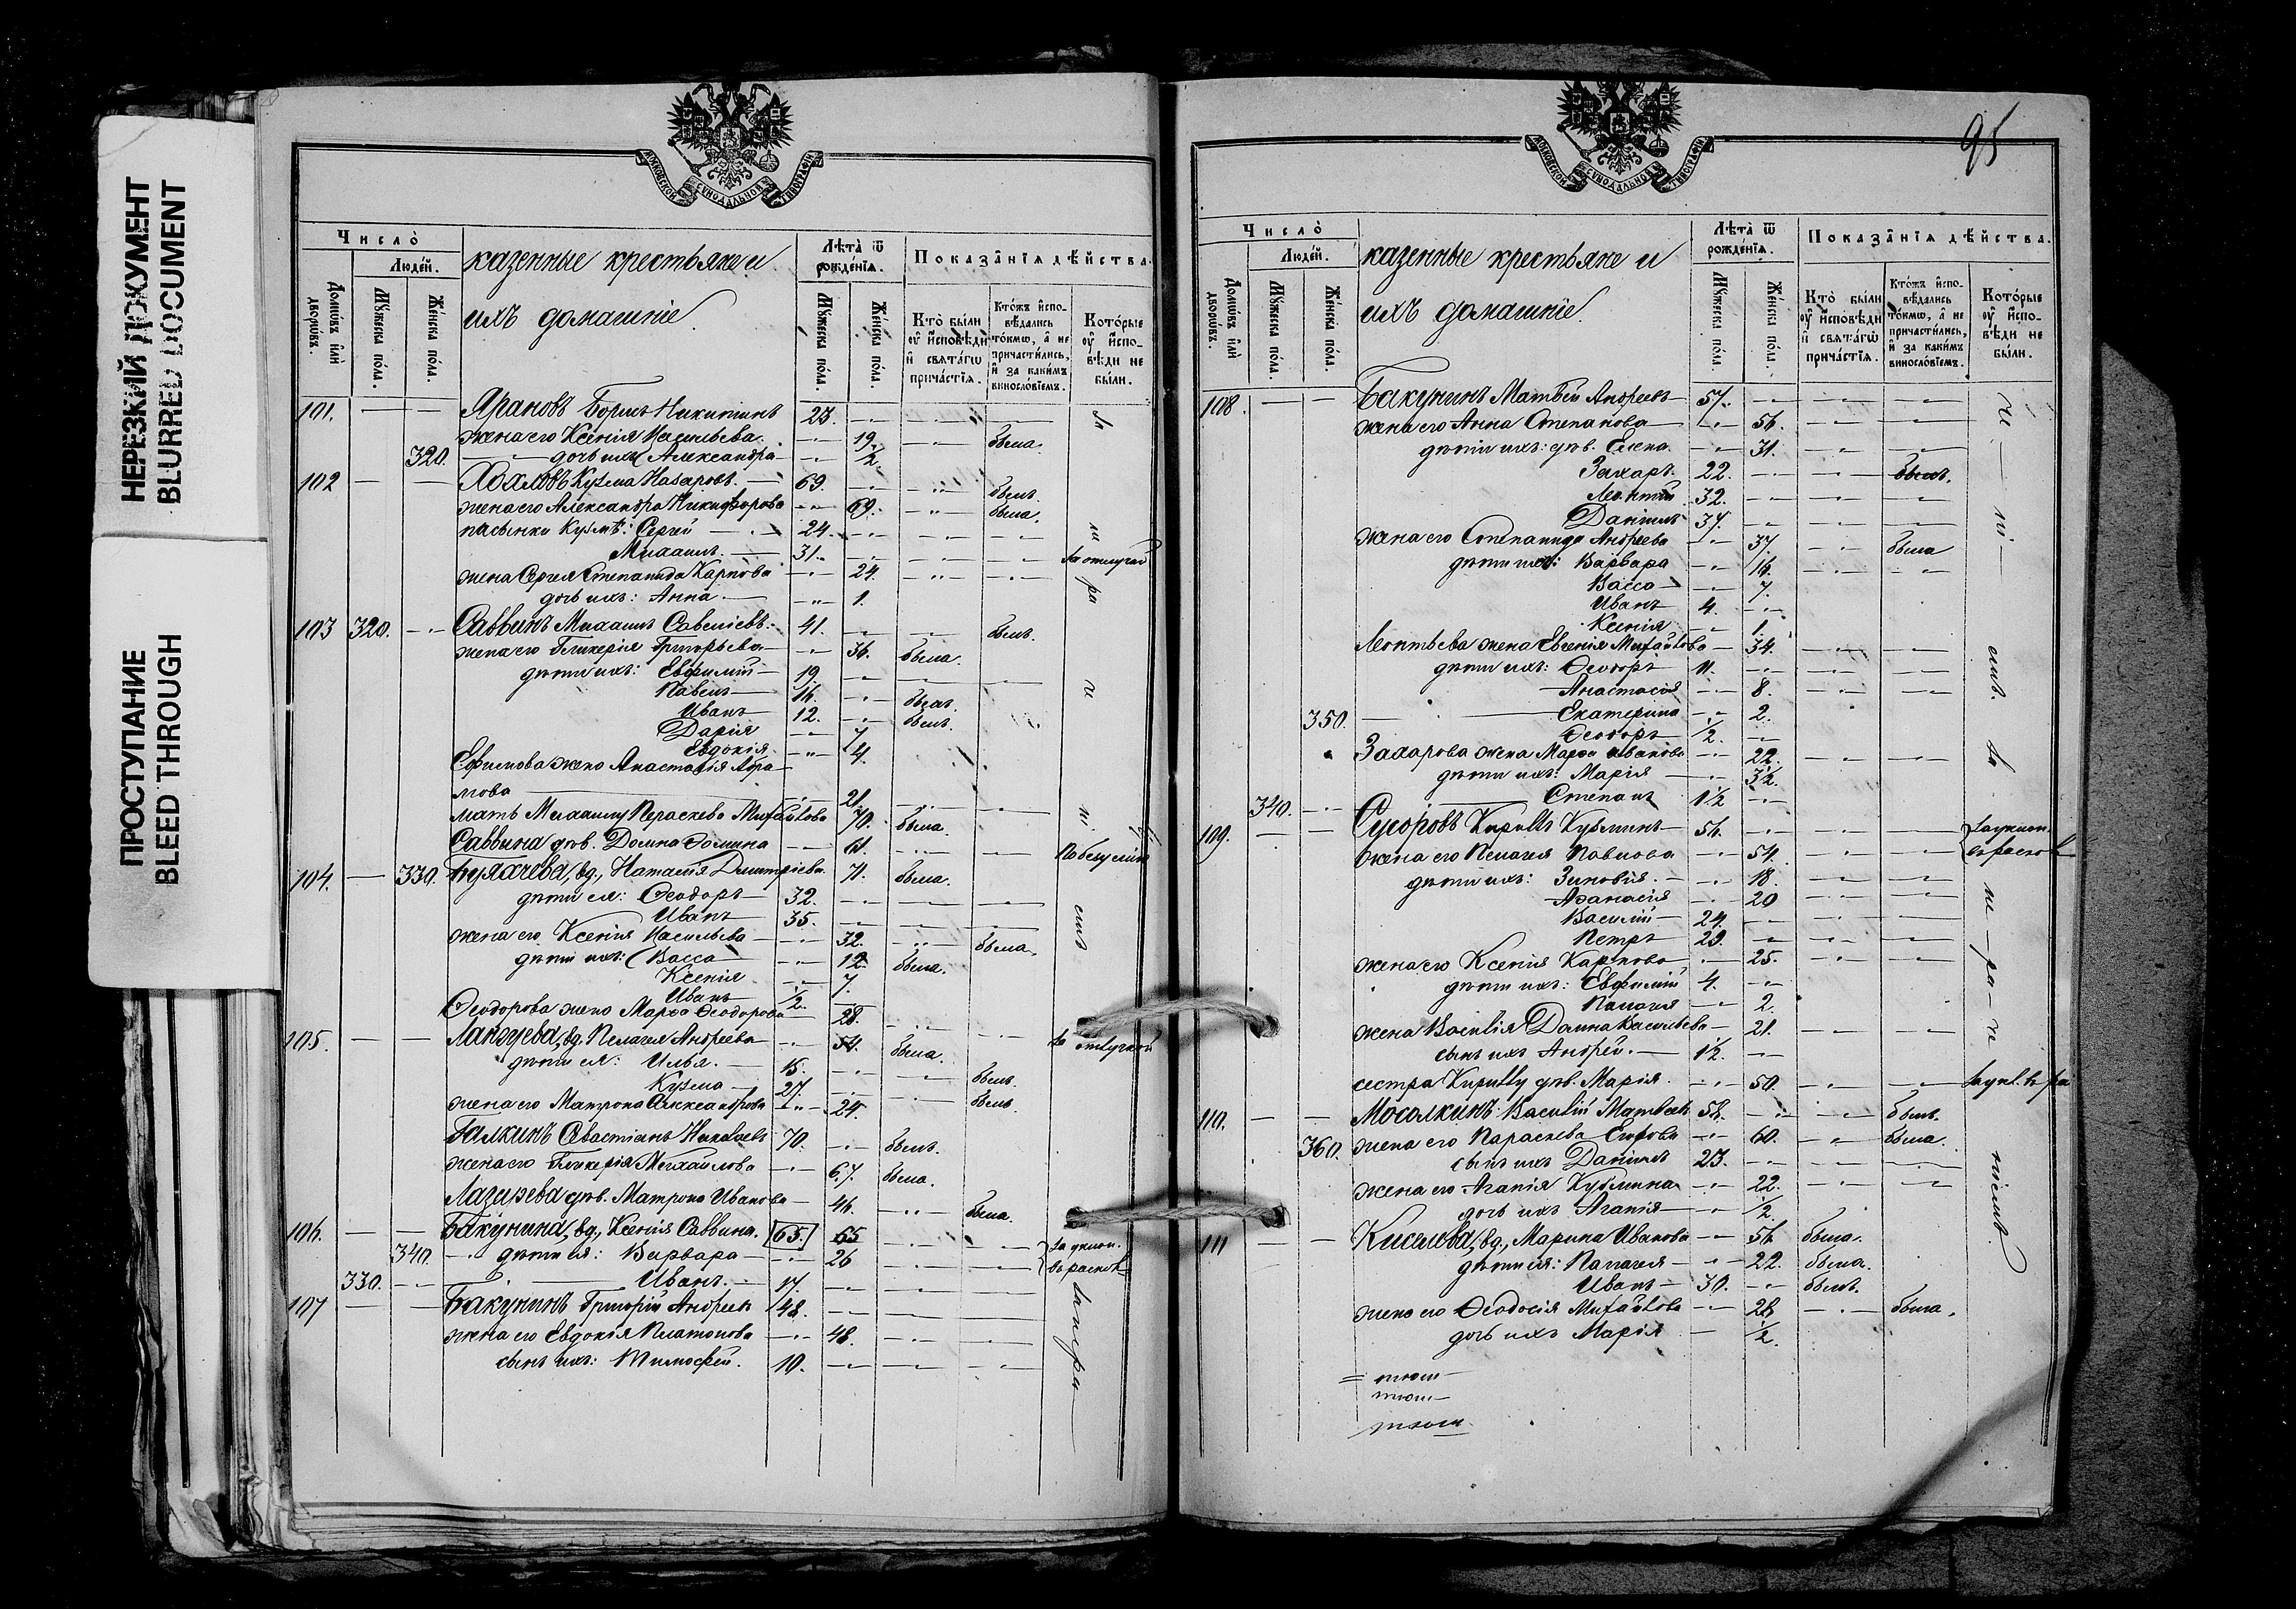 НЕРЕЗКИЙ ДОКУМЕНТ
BLURRED DOCUMENT
ПРОСТУПАНИЕ
BLEED THROUGH
МОСКОВСКОЙ СУНОДАЛЬНОЙ ТИПОГРАФІИ
Число̀
Люде́й.
Домѡ́въ и҆лѝ дворѡ́въ.
Мꙋ́жеска по́ла.
Же́нска по́ла.
казенные крестьяне и
ихъ домашніе
Лѣ́та ѿ рожде́нїѧ.
Мꙋ́жеска по́ла.
Же́нска по́ла.
Показа̑нїѧ дѣ́йства.
Кто̀ бы́ли ᲂу҆ и҆сповѣ́ди и҆ свѧта́гѡ прича́стїѧ.
Кто́жъ и҆спо- вѣ́дались то́кмѡ, а҆ не причасти́лись, и҆ за каки́мъ винослові́емъ.
Кото́рые ᲂу҆ и҆спо- вѣ́ди не бы́ли.
101. Ярановъ Борисъ Никитинъ 23.
жена его Ксенія Васильева 19. была.
320. дочь ихъ Александра 1/2.
102 Хохловъ Кузма Назаровъ. 69. былъ.
жена его Александра Никифорова 69. была.
пасынки Кузмѣ: Сергѣй 24.
Михаилъ 31. въ отлучкѣ
жена Сергѣя Степанида Карпова 24.
дочь ихъ: Анна 1.
103 320. Саввинъ Михаилъ Савеліевъ 41. былъ.
жена его Гликерія Григорьева 36. была.
дѣти ихъ: Евфимій 19.
Павелъ 16. былъ.
Иванъ 12. былъ.
Дарія 7
Евдокія 4.
Ефимова жена Анастасія Абра-
мова 21.
мать Михаилу Параскева Михайлова 70. была.
Саввина дѣв. Домна Фомина 61
104. 330. вд., Наталія Димитріева 71. была.
дѣти ея: Ѳеодоръ 32.
Иванъ 35.
жена его Ксенія Васильева 32. была.
дѣти ихъ: Васса 12. была.
Ксенія 7.
Иванъ 1/2.
Ѳеодорова жена Марѳа Ѳеодорова 28.
105. вд. Пелагея Андреева 54. была.
дѣти ея: Илья. 15. былъ.
Кузма 27. былъ.
жена его Матрона Александрова 24.
Галкинъ Севастіанъ Николаевъ 70. былъ.
жена его Гликерія Михайлова 67. была.
Лазарева дѣв. Матрона Иванова 46. была.
106. Бакунина, вд., Ксенія Саввина. 65. 65
340. дѣти ея: Варвара 26
330. Иванъ. 17.
107 Бакунинъ Григорій Андреевъ 48.
жена его Евдокія Платонова 48.
сынъ ихъ: Тимоѳей. 10.
95
МОСКОВСКОЙ СУНОДАЛЬНОЙ ТИПОГРАФІИ
Число̀
Люде́й.
Домѡ́въ и҆лѝ дворѡ́въ.
Мꙋ́жеска по́ла.
Же́нска по́ла.
казенные крестьяне и
ихъ домашніе
Лѣ́та ѿ рожде́нїѧ.
Мꙋ́жеска по́ла.
Же́нска по́ла.
Показа̑нїѧ дѣ́йства.
Кто̀ бы́ли ᲂу҆ и҆сповѣ́ди и҆ свѧта́гѡ прича́стїѧ.
Кто́жъ и҆спо- вѣ́дались то́кмѡ, а҆ не причасти́лись, и҆ за каки́мъ винослові́емъ.
Кото́рые ᲂу҆ и҆спо- вѣ́ди не бы́ли.
108. Бакунинъ Матвѣй Андреевъ 57.
жена его Анна Степанова 56.
дѣти ихъ: дѣв. Елена 31.
Захаръ 22. былъ.
Леонтій 32.
Даніилъ 37.
жена его Степанида Андреева 37. была
дѣти ихъ: Варвара 16.
Васса 7.
Иванъ 4.
Ксенія 1.
Леонтьева жена Евгенія Михайлова 34.
дѣти ихъ: Ѳеодоръ 11.
Анастасія 8.
350. Екатерина 2.
Ѳеодоръ 1/2.
Захарова жена Марѳа Иванова 22.
дѣти ихъ: Марія 3 1/2.
340. Степанъ 1 1/2
109. Сусоровъ Кириллъ Кузминъ 56.
жена его Пелагея Павлова 54.
дѣти ихъ: Зиновія 18.
Аѳанасія 20
Василій 24.
Петръ 29.
жена его Ксенія Карпова 25.
дѣти ихъ: Евфимій 4.
Пелагея 2.
жена Василія Домна Васильева 21.
сынъ ихъ Андрей. 1 1/2.
сестра Кириллу дѣв. Марія 50.
110. Мосолкинъ Василій Матвѣевъ 58. былъ.
360. жена его Параскева Егорова 60. была.
сынъ ихъ Даніилъ 23.
жена его Агапія Кузмина 22.
дочь ихъ Агапія 1/2.
111 Киселева, вд., Марина Иванова 56 была.
дѣти ея: Пелагея 22. была.
Иванъ 30. былъ.
жена его Ѳеодосія Михайлова 28 была.
дочь ихъ Марія 1/2.